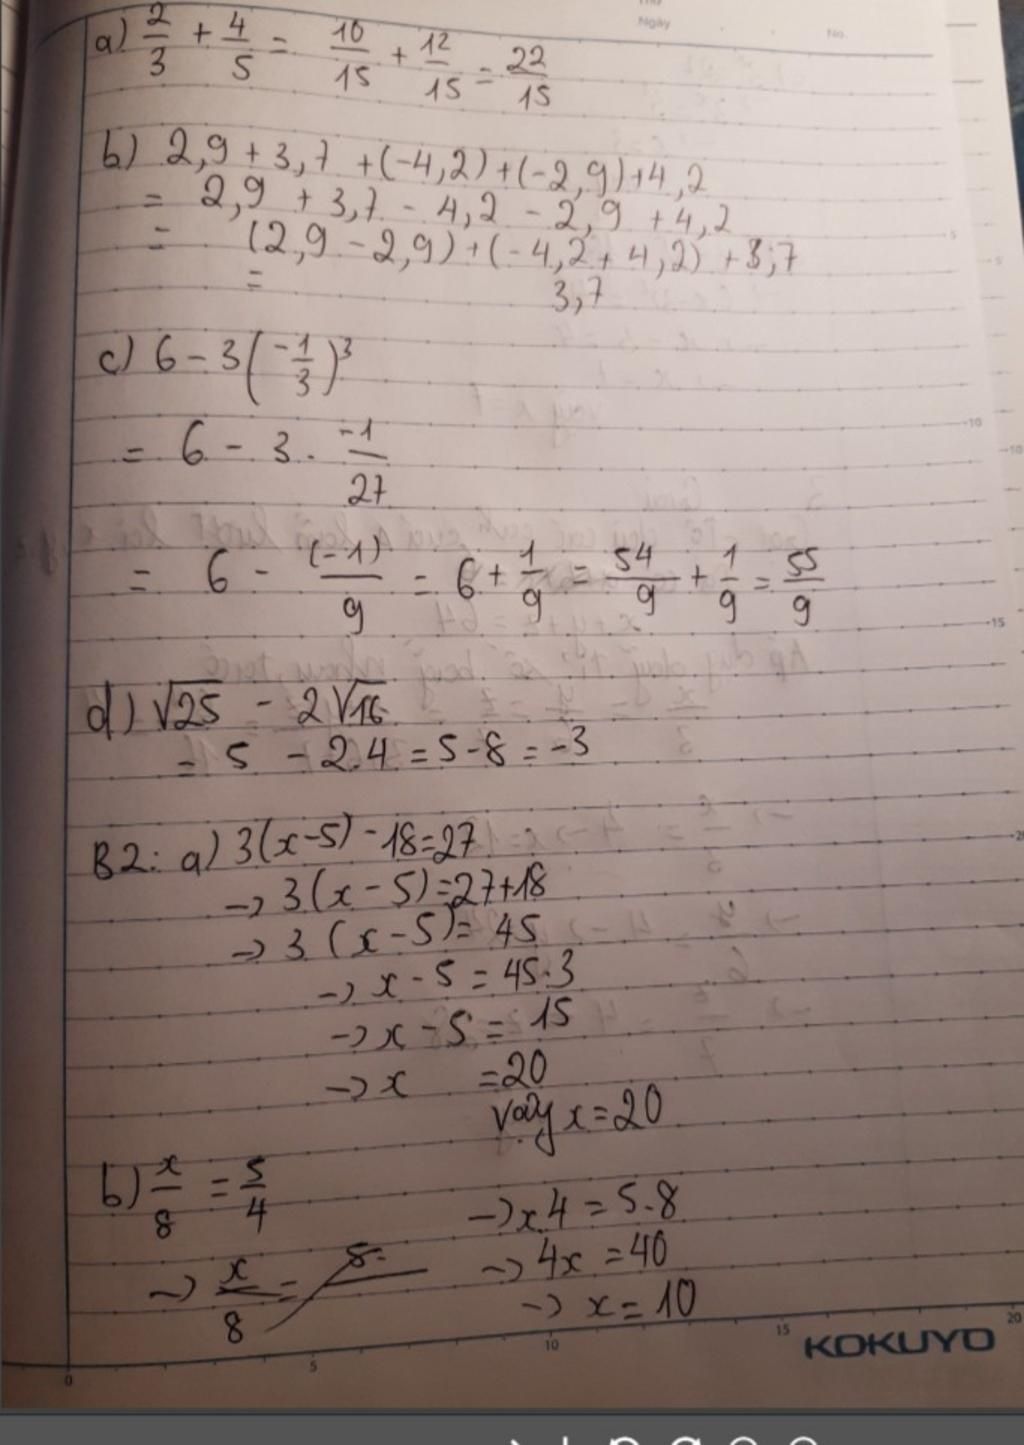 Ngày
No.
a) 2/3 + 4/5 = 10/15 + 12/15 = 22/15
b) 2,9 + 3,7 + (-4,2) + (-2,9) + 4,2
= 2,9 + 3,7 - 4,2 - 2,9 + 4,2
= (2,9 - 2,9) + (-4,2 + 4,2) + 3,7
= 3,7
c) 6 - 3(-1/3)³
= 6 - 3 . -1/27
= 6 - (-1)/9 = 6 + 1/9 = 54/9 + 1/9 = 55/9
d) √25 - 2√16
= 5 - 2.4 = 5 - 8 = -3
B2: a) 3(x-5) - 18 = 27
→ 3(x - 5) = 27 + 18
→ 3 (x - 5) = 45
→ x - 5 = 45 . 3
→ x - 5 = 15
→ x = 20
Vậy x = 20
b) x/8 = 5/4
→ x/8 =
→ x 4 = 5.8
→ 4x = 40
→ x = 10
0 5 10 15 20
KOKUYO